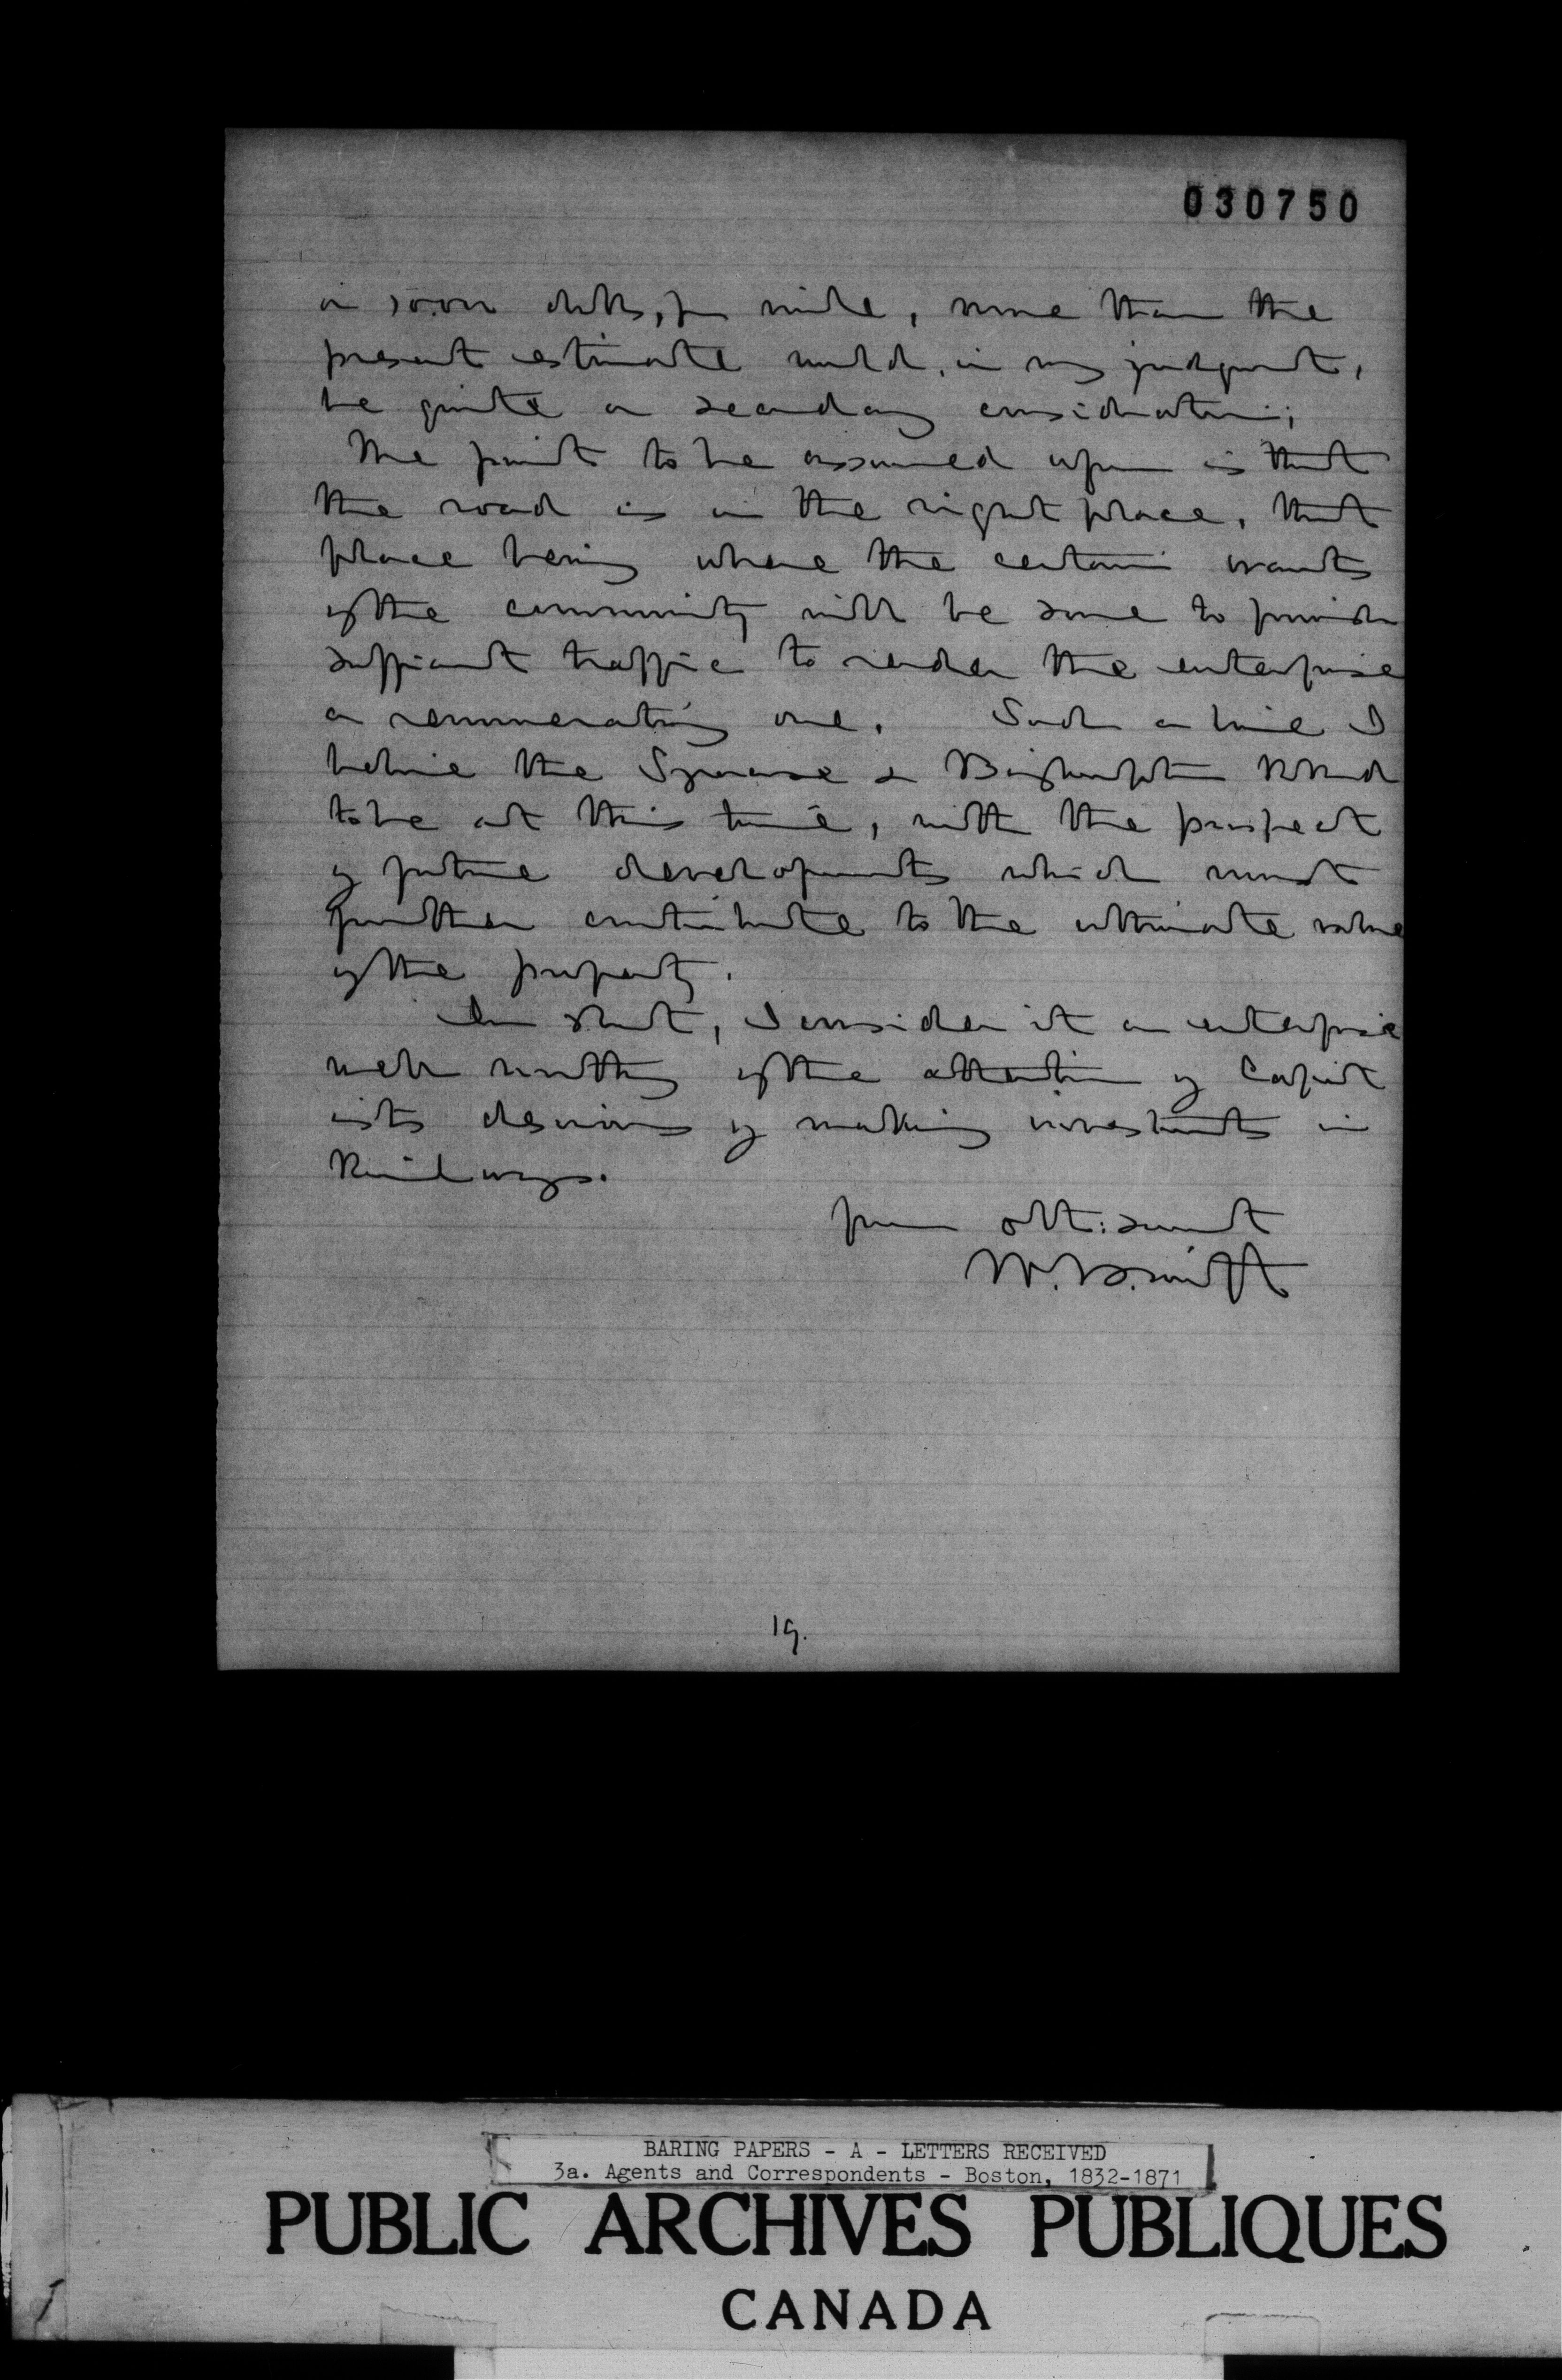 030750
dolls, per mile, more than the
present estimate would, in my judgment,
be quite a secondary consideration;
The point to be assured upon is that
the road is in the right place, that
place being where the certain wants
of the community will be sure to provide
sufficient traffic to render the enterprise
a remunerating one. Such a line I
believe the Syracuse & Binghampton RRoad
to be at this time, with the prospect
of future developments which must
further contribute to the ultimate value
of the property.
In short, I consider it an enterprise
well worthy of the attention of Capital
ists desirous of making investments in
Railways.
your obt: servant
W. H. Swift
19.
BARING PAPERS - A - LETTERS RECEIVED
3a. Agents and Correspondents - Boston, 1832-1871
PUBLIC ARCHIVES PUBLIQUES
CANADA